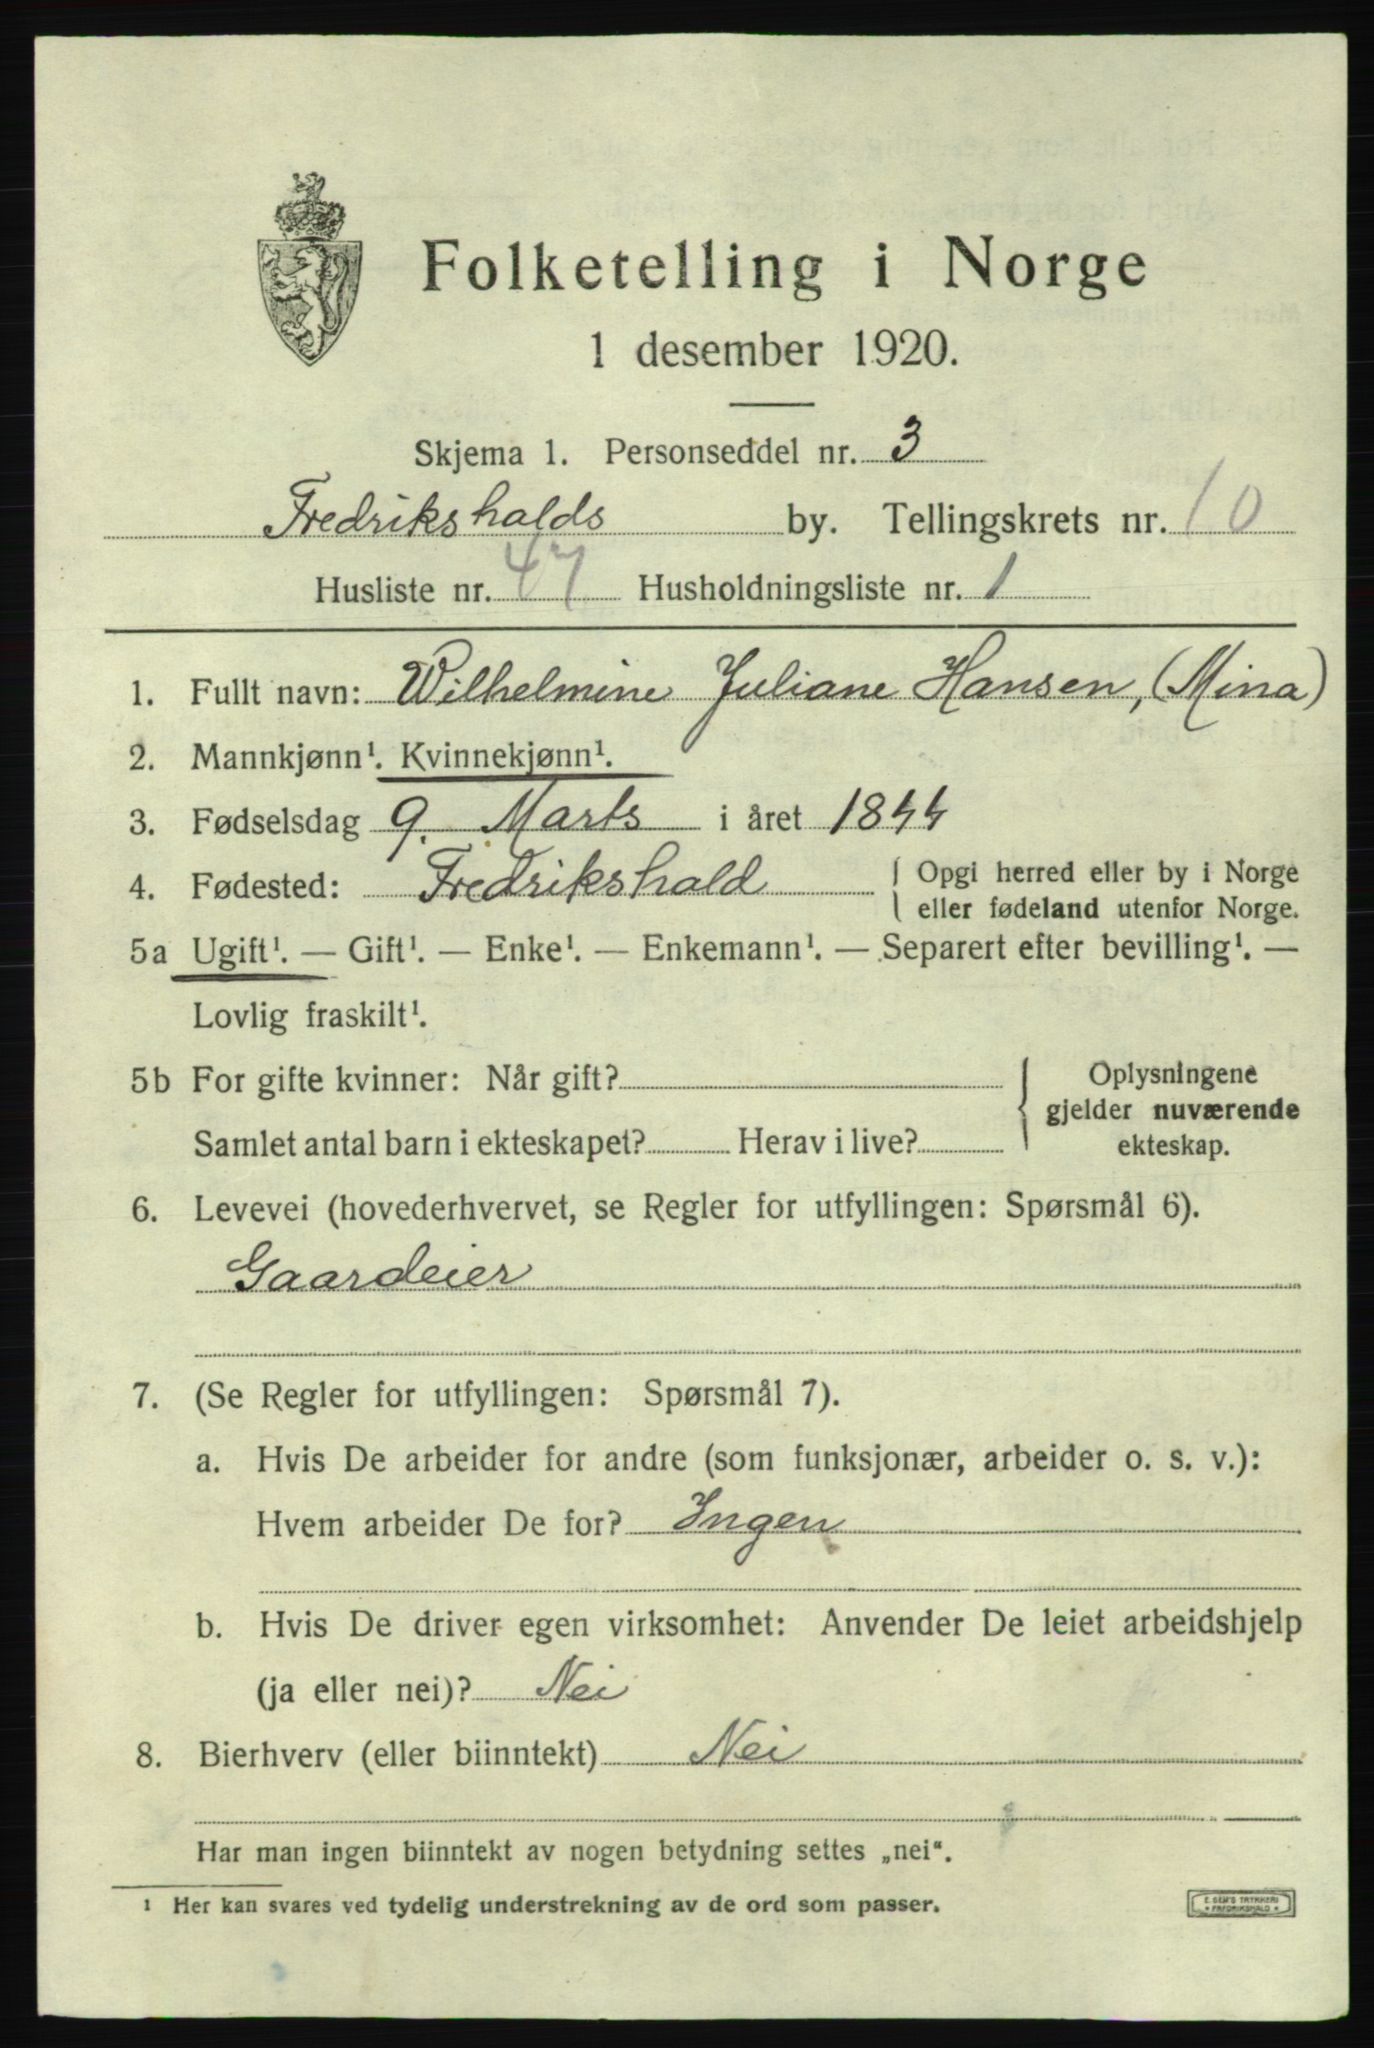 Folketelling i Norge
1 desember 1920.
Skjema 1. Personseddel nr. 3
Fredrikshalds by. Tellingskrets nr. 10
Husliste nr. 47 Husholdningsliste nr. 1
1. Fullt navn: Wilhelmine Juliane Hansen, (Mina)
2. Mannkjønn¹. Kvinnekjønn¹.
3. Fødselsdag 9. Marts i året 1844
4. Fødested: Fredrikshald { Opgi herred eller by i Norge
eller fødeland utenfor Norge.
5a Ugift¹. — Gift¹. — Enke¹. — Enkemann¹. — Separert efter bevilling¹. —
Lovlig fraskilt¹.
5b For gifte kvinner: Når gift?
Samlet antal barn i ekteskapet? Herav i live?
Oplysningene
gjelder nuværende
ekteskap.
6. Levevei (hovederhvervet, se Regler for utfyllingen: Spørsmål 6).
Gaardeier
7. (Se Regler for utfyllingen: Spørsmål 7).
a. Hvis De arbeider for andre (som funksjonær, arbeider o. s. v.):
Hvem arbeider De for? Ingen
b. Hvis De driver egen virksomhet: Anvender De leiet arbeidshjelp
(ja eller nei)? Nei
8. Bierhverv (eller biinntekt) Nei
Har man ingen biinntekt av nogen betydning settes „nei".
¹ Her kan svares ved tydelig understrekning av de ord som passer.
E. SEM'S TRYKKERI
FREDRIKSHALD